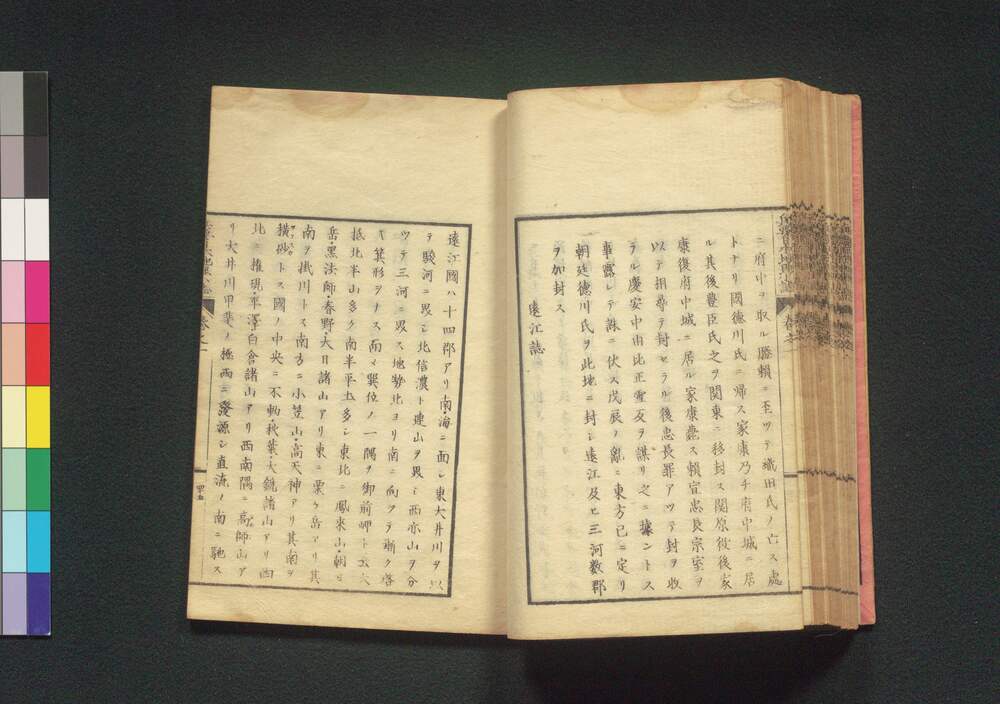 ニ府中ヲ取ル勝賴ニ至ツテ織田氏ノ亡ス處
トナリ國德川氏ニ帰ス家康乃チ府中城ニ居
ル其後豊臣氏之ヲ関東ニ移封ス関原役後家
康復府中城ニ居ル家康薨ス賴宣忠長宗室ヲ
以テ相尋テ封セラル後忠長罪アツテ封ヲ收
ラル慶安中由比正雪反ヲ謀リ之ニ據ントス
事露レテ誅ニ伏ス戊辰ノ亂ニ東方已ニ定リ
朝廷德川氏ヲ此地ニ封シ遠江及ヒ三河数郡
ヲ加封ス
遠江誌
遠江國ハ十四郡アリ南海ニ面シ東大井川ヲ以
テ駿河ニ界シ北信濃ト連山ヲ界シ西亦山ヲ分
ツテ三河ニ界ス地勢北ヨリ南ニ向フテ漸ク啓
キ箕形ヲナス而〆巽位ノ一隅ヲ御前岬ト云大
抵北半山多ク南半平土多シ東北ニ鳳來山・朝日
岳・黒法師・春野・大日諸山アリ東ニ粟ケ岳アリ其
南ヲ掛川トス南方ニ小笠山・高天神アリ其南ヲ
橫砂トス國ノ中央ニ不動・秋葉・大鏡諸山アリ西
北ニ権現・平澤・白倉諸山アリ西南隅ニ高師山ア
リ大井川甲斐ノ極西ニ發源シ直流ノ南ニ馳ス
卷之一
四五